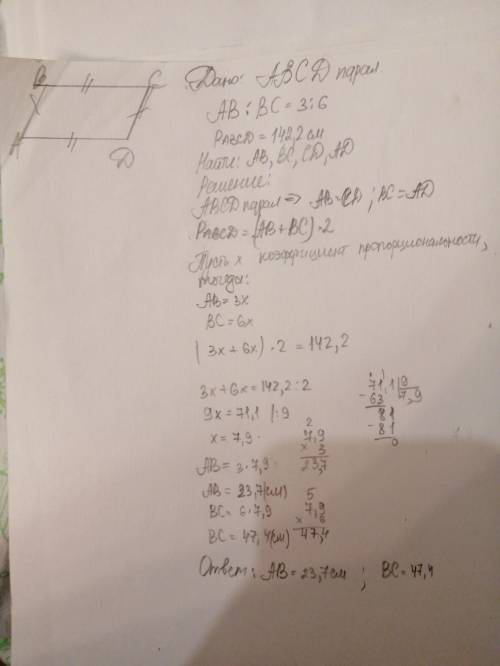 B C
A D
Дано: ABCD парал.
AB : BC = 3 : 6
PABCD = 142,2 см
Найти: AB, BC, CD, AD
Решение:
ABCD парал => AB = CD ; BC = AD
PABCD = (AB + BC) · 2
Пусть x коэффициент пропорциональности,
тогда:
AB = 3x
BC = 6x
(3x + 6x) · 2 = 142,2
3x + 6x = 142,2 : 2
9x = 71,1 |: 9
x = 7,9
AB = 3 · 7,9
AB = 23,7 (см)
BC = 6 · 7,9
BC = 47,4 (см)
71,1 | 9
- 63 7,9
81
- 81
0
2
7,9
x 3
23,7
5
7,9
x 6
47,4
Ответ: AB = 23,7 см ; BC = 47,4